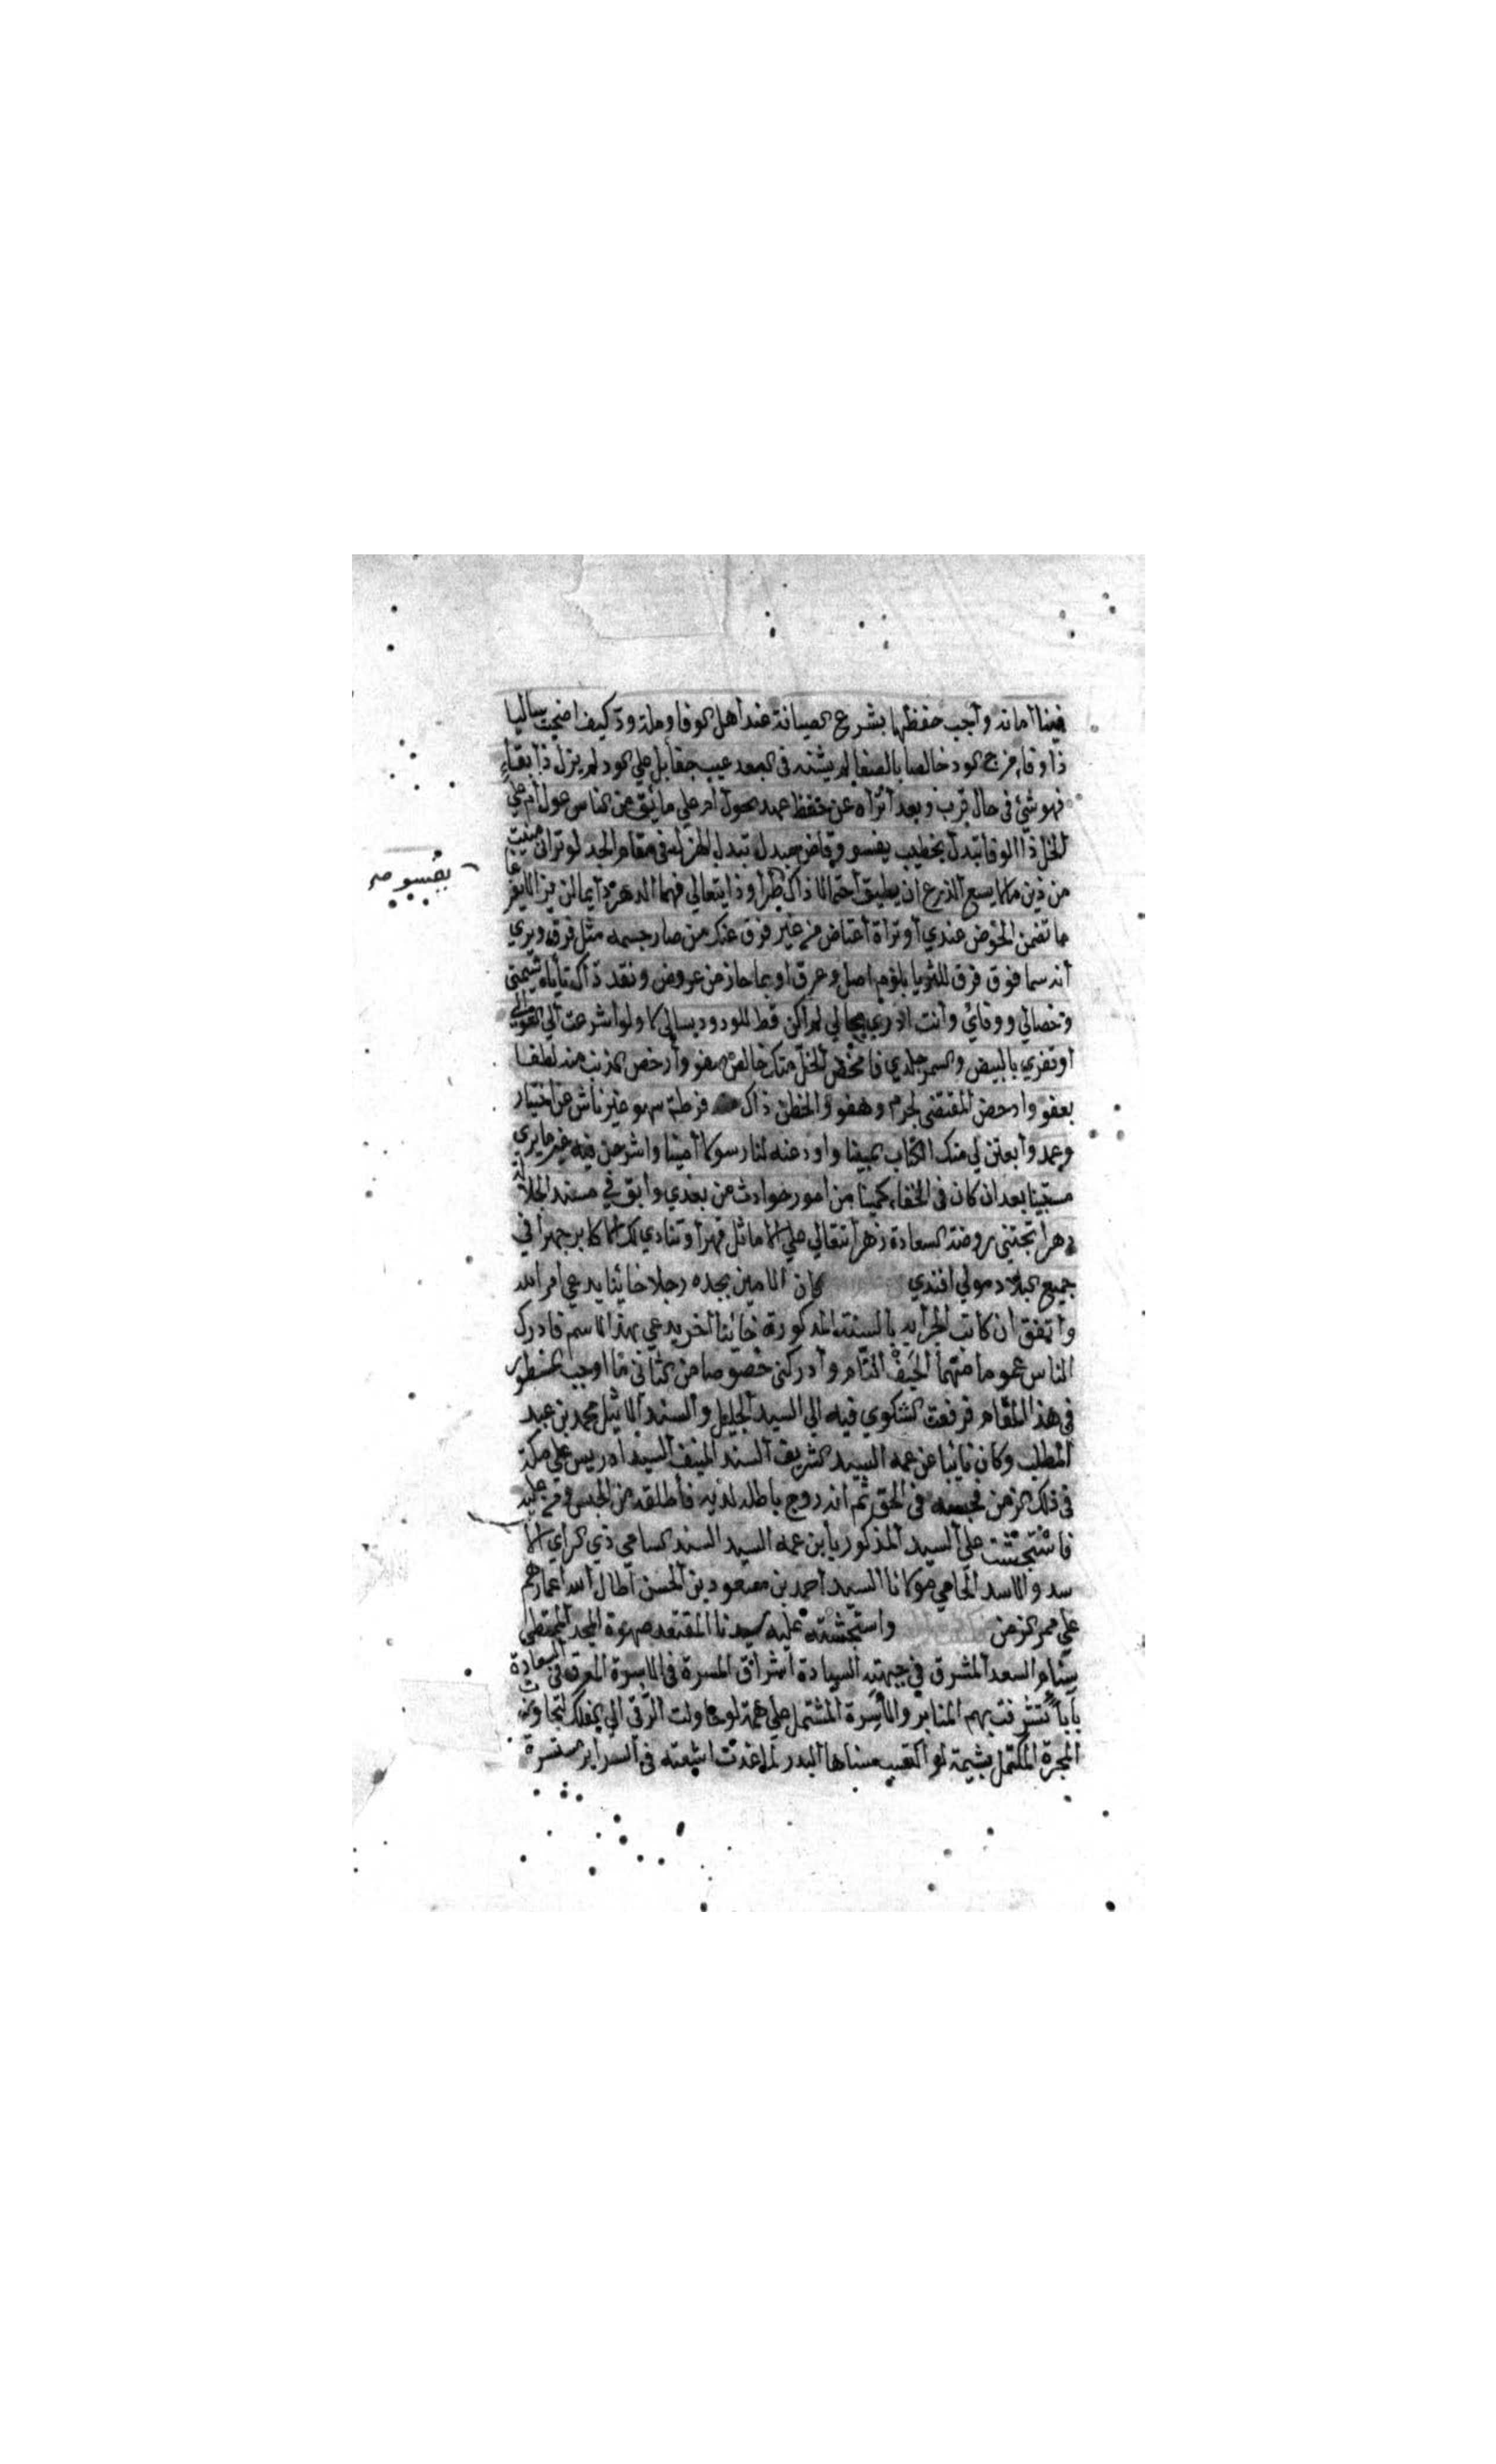 فينا أمانة وأجب حفظها بشرع الصيانة عند أهل الوفا وملة ود كيف اضحيت ساليا
ذا وفا، مزج الود خالصا بالصفا لم يشنه في البعد عيب جفا بل علي الود لم يزل ذا بقاءٍ
فهو شيئ في حال قرب وبعد أتراه عن حفظ عهد يحول أم علي ما يُنق من الناس عول أم علي
الخل ذا الوفا تبدل بخطيب يفسو وقاض مبدل تبدل الهزل في مقام الجد لو تراني منيت
من ذين ما لا يسع الذرع ان يطيق احتمالا ذاك طرا وذا يتعالي فهما الدهر دايما لن يزالا
ما تضمن الخوض عندي أو تراه أعتاض من غير فرق عنك من صار جسمه مثل فرق ويري
أنه سما فوق فرق للثريا بلؤم اصل وعرق او بما حاز من عروض ونقد ذاك تأباه شيمتي
وخصالي ووفائي وأنت ادري بحالي لم اكن قط للودود بسالي لا ولو أشرعت ألي العوالي
أو تفري بالبيض والسمر جلدي فامحض الخل منك خالص صفو وأرخص الذنب منه لطفا
بعفو وادحض المقتضي لجرم وهفو والخطن ذاك فرطة سهو غير ناش عن اختيار
وعمد وأبعثن لي منك الكتاب المبينا واودعنه لنا رسولا أمينا واشرحن فيه خير ما يري
مستبينا بعد ان كان في الخفاء كمينا من امور حوادث من بعدي وابق في مسند الجلالة
دهرا تجتني روضة السعادة زهرا تتعالي علي الاماثل قهرا وتنادي لك الاكابر جهرا في
جميع البلاد مولي افندي كان الامين بجده رجلا خائنا يدعي امر الله
وأتفق ان كاتب الجرايه بالسنة المذكورة خائنا أخر يدعي بهذا الاسم فادرك
الناس عموما منهما الحيف التام وأدركني خصوصا من الثاني ما اوجب المسطور
في هذا المقام فرفعت الشكوي فيه الي السيد الجليل والسند الاثيل محمد بن عبد
المطلب وكان نائبا عن عمه السيد الشريف السند المنيف السيد أدريس علي مكة
في ذلك الزمن فحبسه في الحق ثم انه روج باطله لديه فأطلقه من الحبس وقع عليه
فاستجشت علي السيد المذكور بأبن عمه السيد السند السامي ذي الراي الا
سد والاسد الحامي مولانا السيد احمد بن مسعود بن الحسن أطال الله أعمارهم
علي ممر الزمن واستجشته عليه سيدنا المقتعد صهوة المجد الممتطي
سنام السعد المشرق في جبهته السيادة اشراق المسرة في الاسرة المعرق في السعادة
بأباً تتشرفت بهم المنابر والأسرة المشتمل علي همة لو حاولت الرقي الي الفلك لتجاوزت
المجرة المكتمل بشيمة لو اكتسب سناها البدر لما غدت اشعته في السراير مستسرة